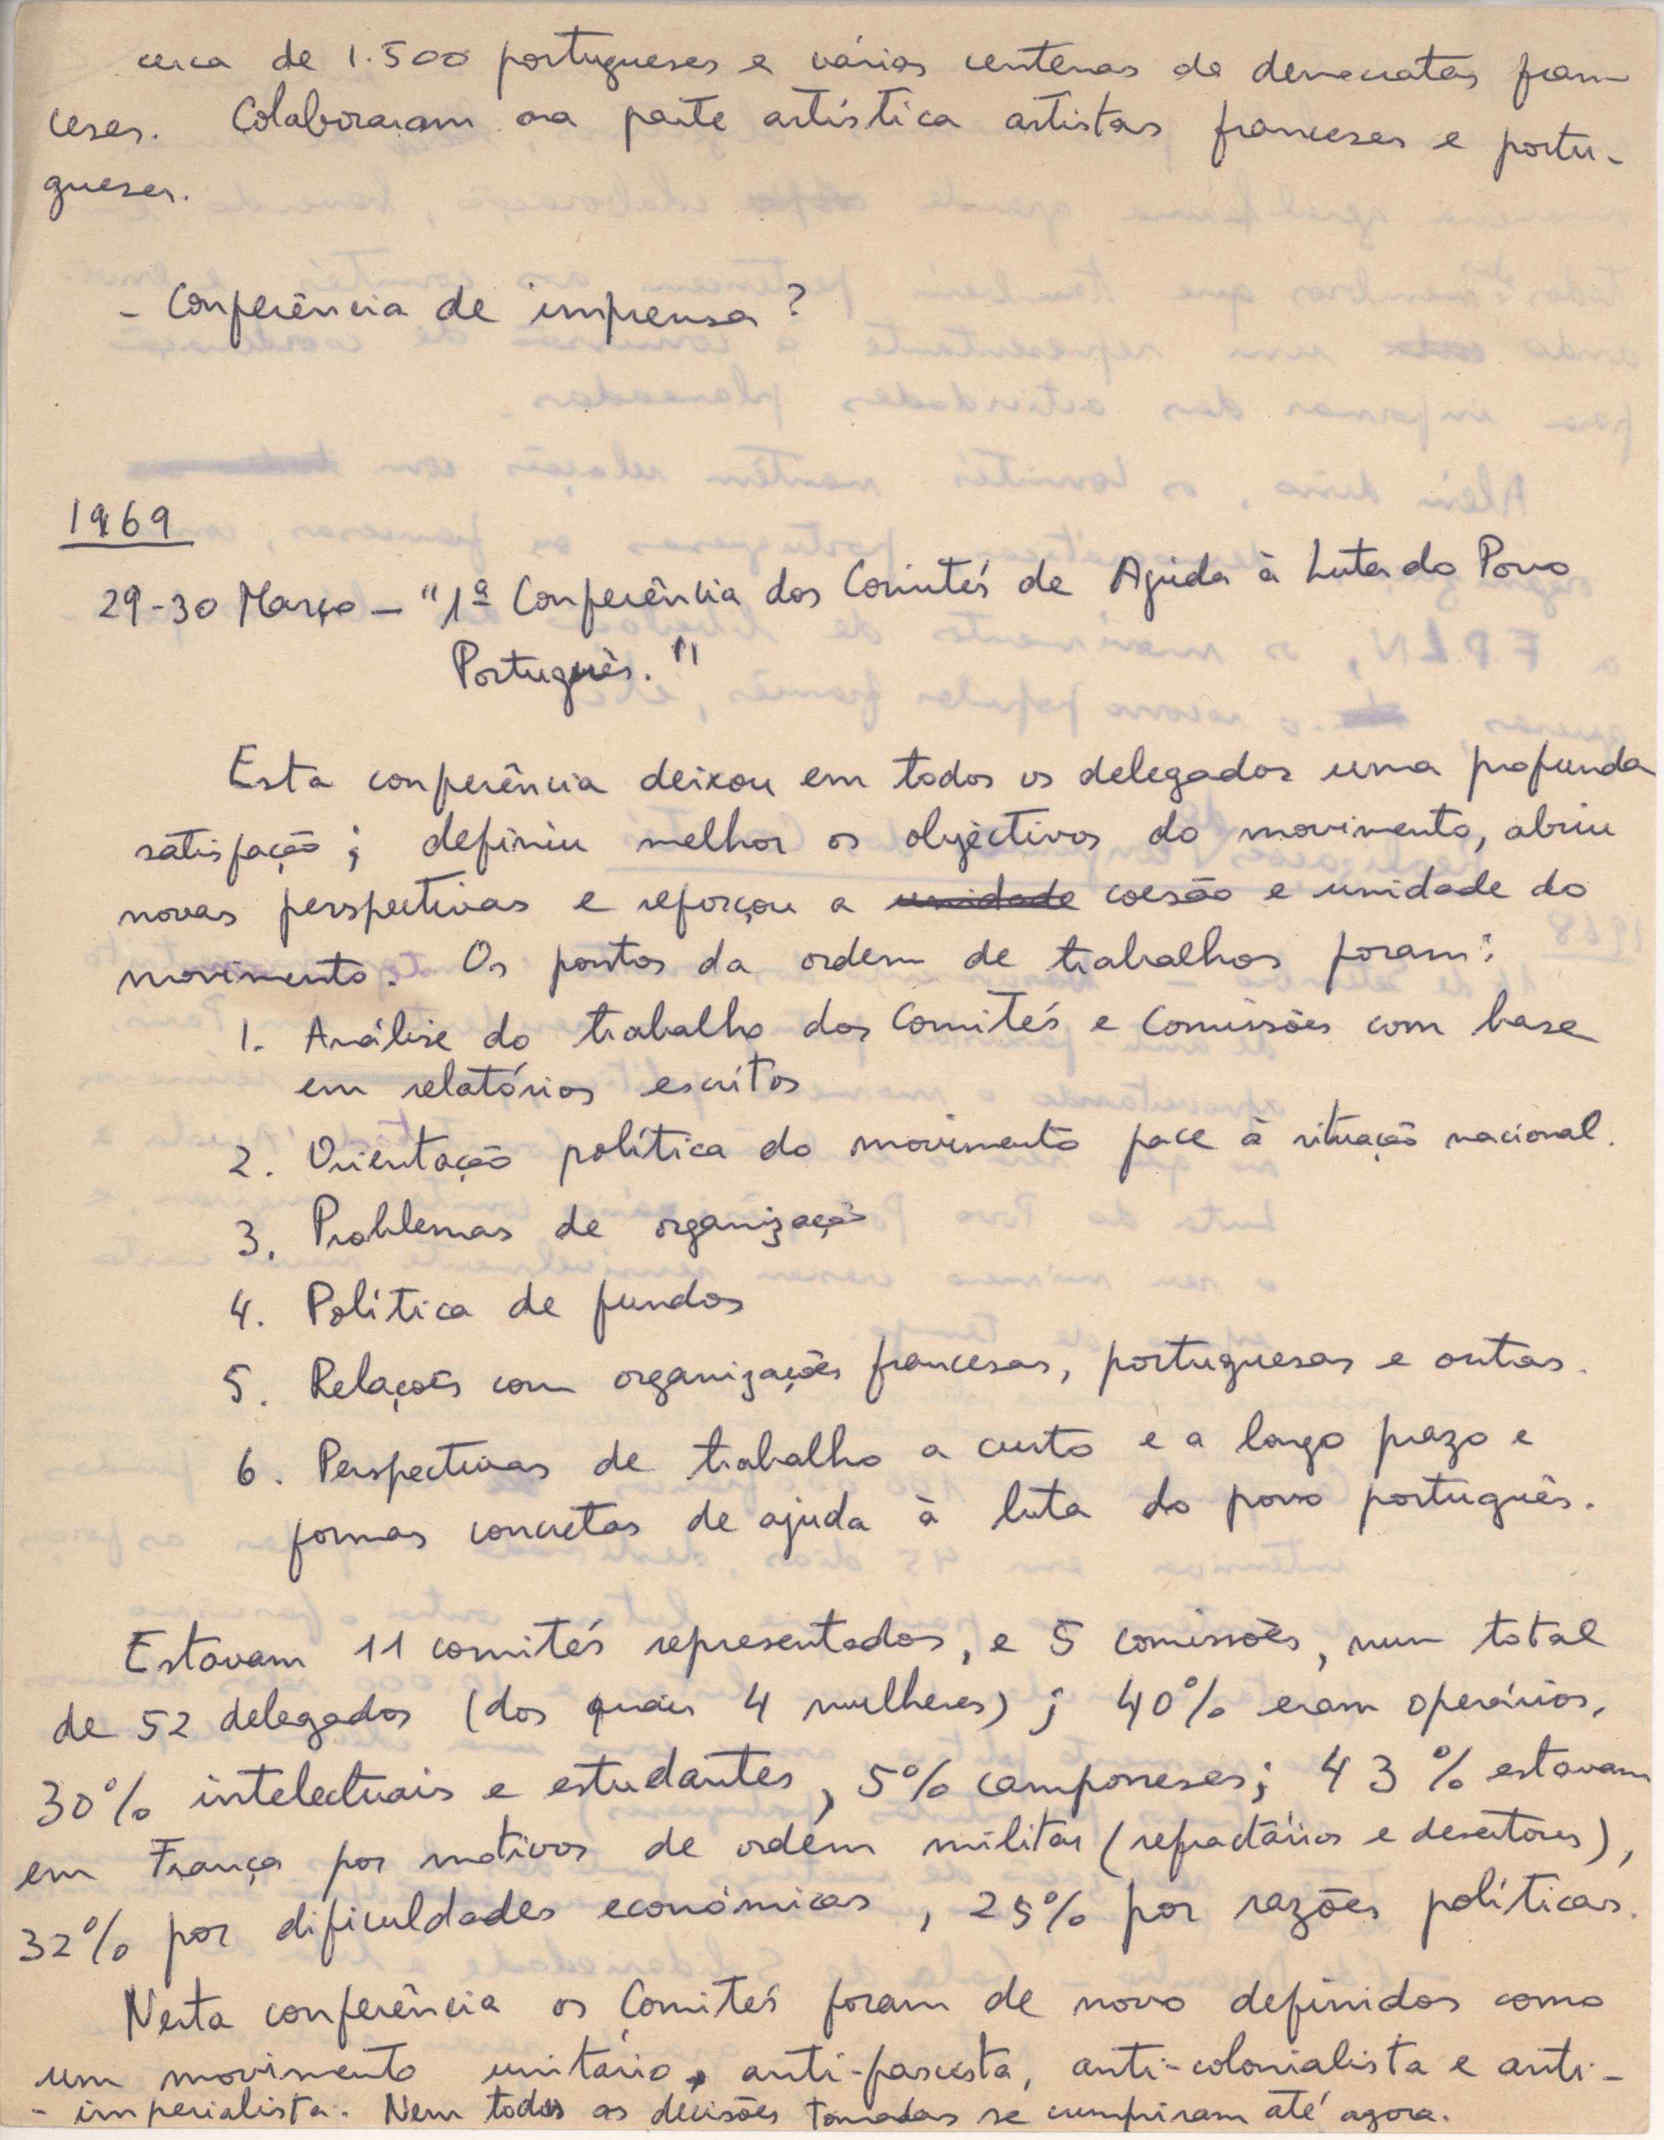 cerca de 1.500 portugueses e várias centenas de democratas fran
ceses. Colaboraram na parte artística artistas franceses e portu-
gueses.
- Conferência de imprensa?
1969
29-30 Março - "1ª Conferência dos Comités de Ajuda à Luta do Povo
Português."
Esta conferência deixou em todos os delegados uma profunda
satisfação; definiu melhor os objectivos do movimento, abriu
novas perspectivas e reforçou a unidade coesão e unidade do
movimento. Os pontos da ordem de trabalhos foram:
1. Análise do trabalho dos Comités e Comissões com base
em relatórios escritos
2. Orientação política do movimento face à situação nacional.
3. Problemas de organização
4. Política de fundos
5. Relações com organizações francesas, portuguesas e outras.
6. Perspectivas de trabalho a curto e a longo prazo e
formas concretas de ajuda à luta do povo português.
Estavam 11 comités representados, e 5 comissões, num total
de 52 delegados (dos quais 4 mulheres); 40% eram operários,
30% intelectuais e estudantes, 5% camponeses; 43% estavam
em França por motivos de ordem militar (refractários e desertores),
32% por dificuldades económicas, 25% por razões políticas.
Nesta conferência os Comités foram de novo definidos como
um movimento unitário, anti-fascista, anti-colonialista e anti-
-imperialista. Nem todas as decisões tomadas se cumpriram até agora.